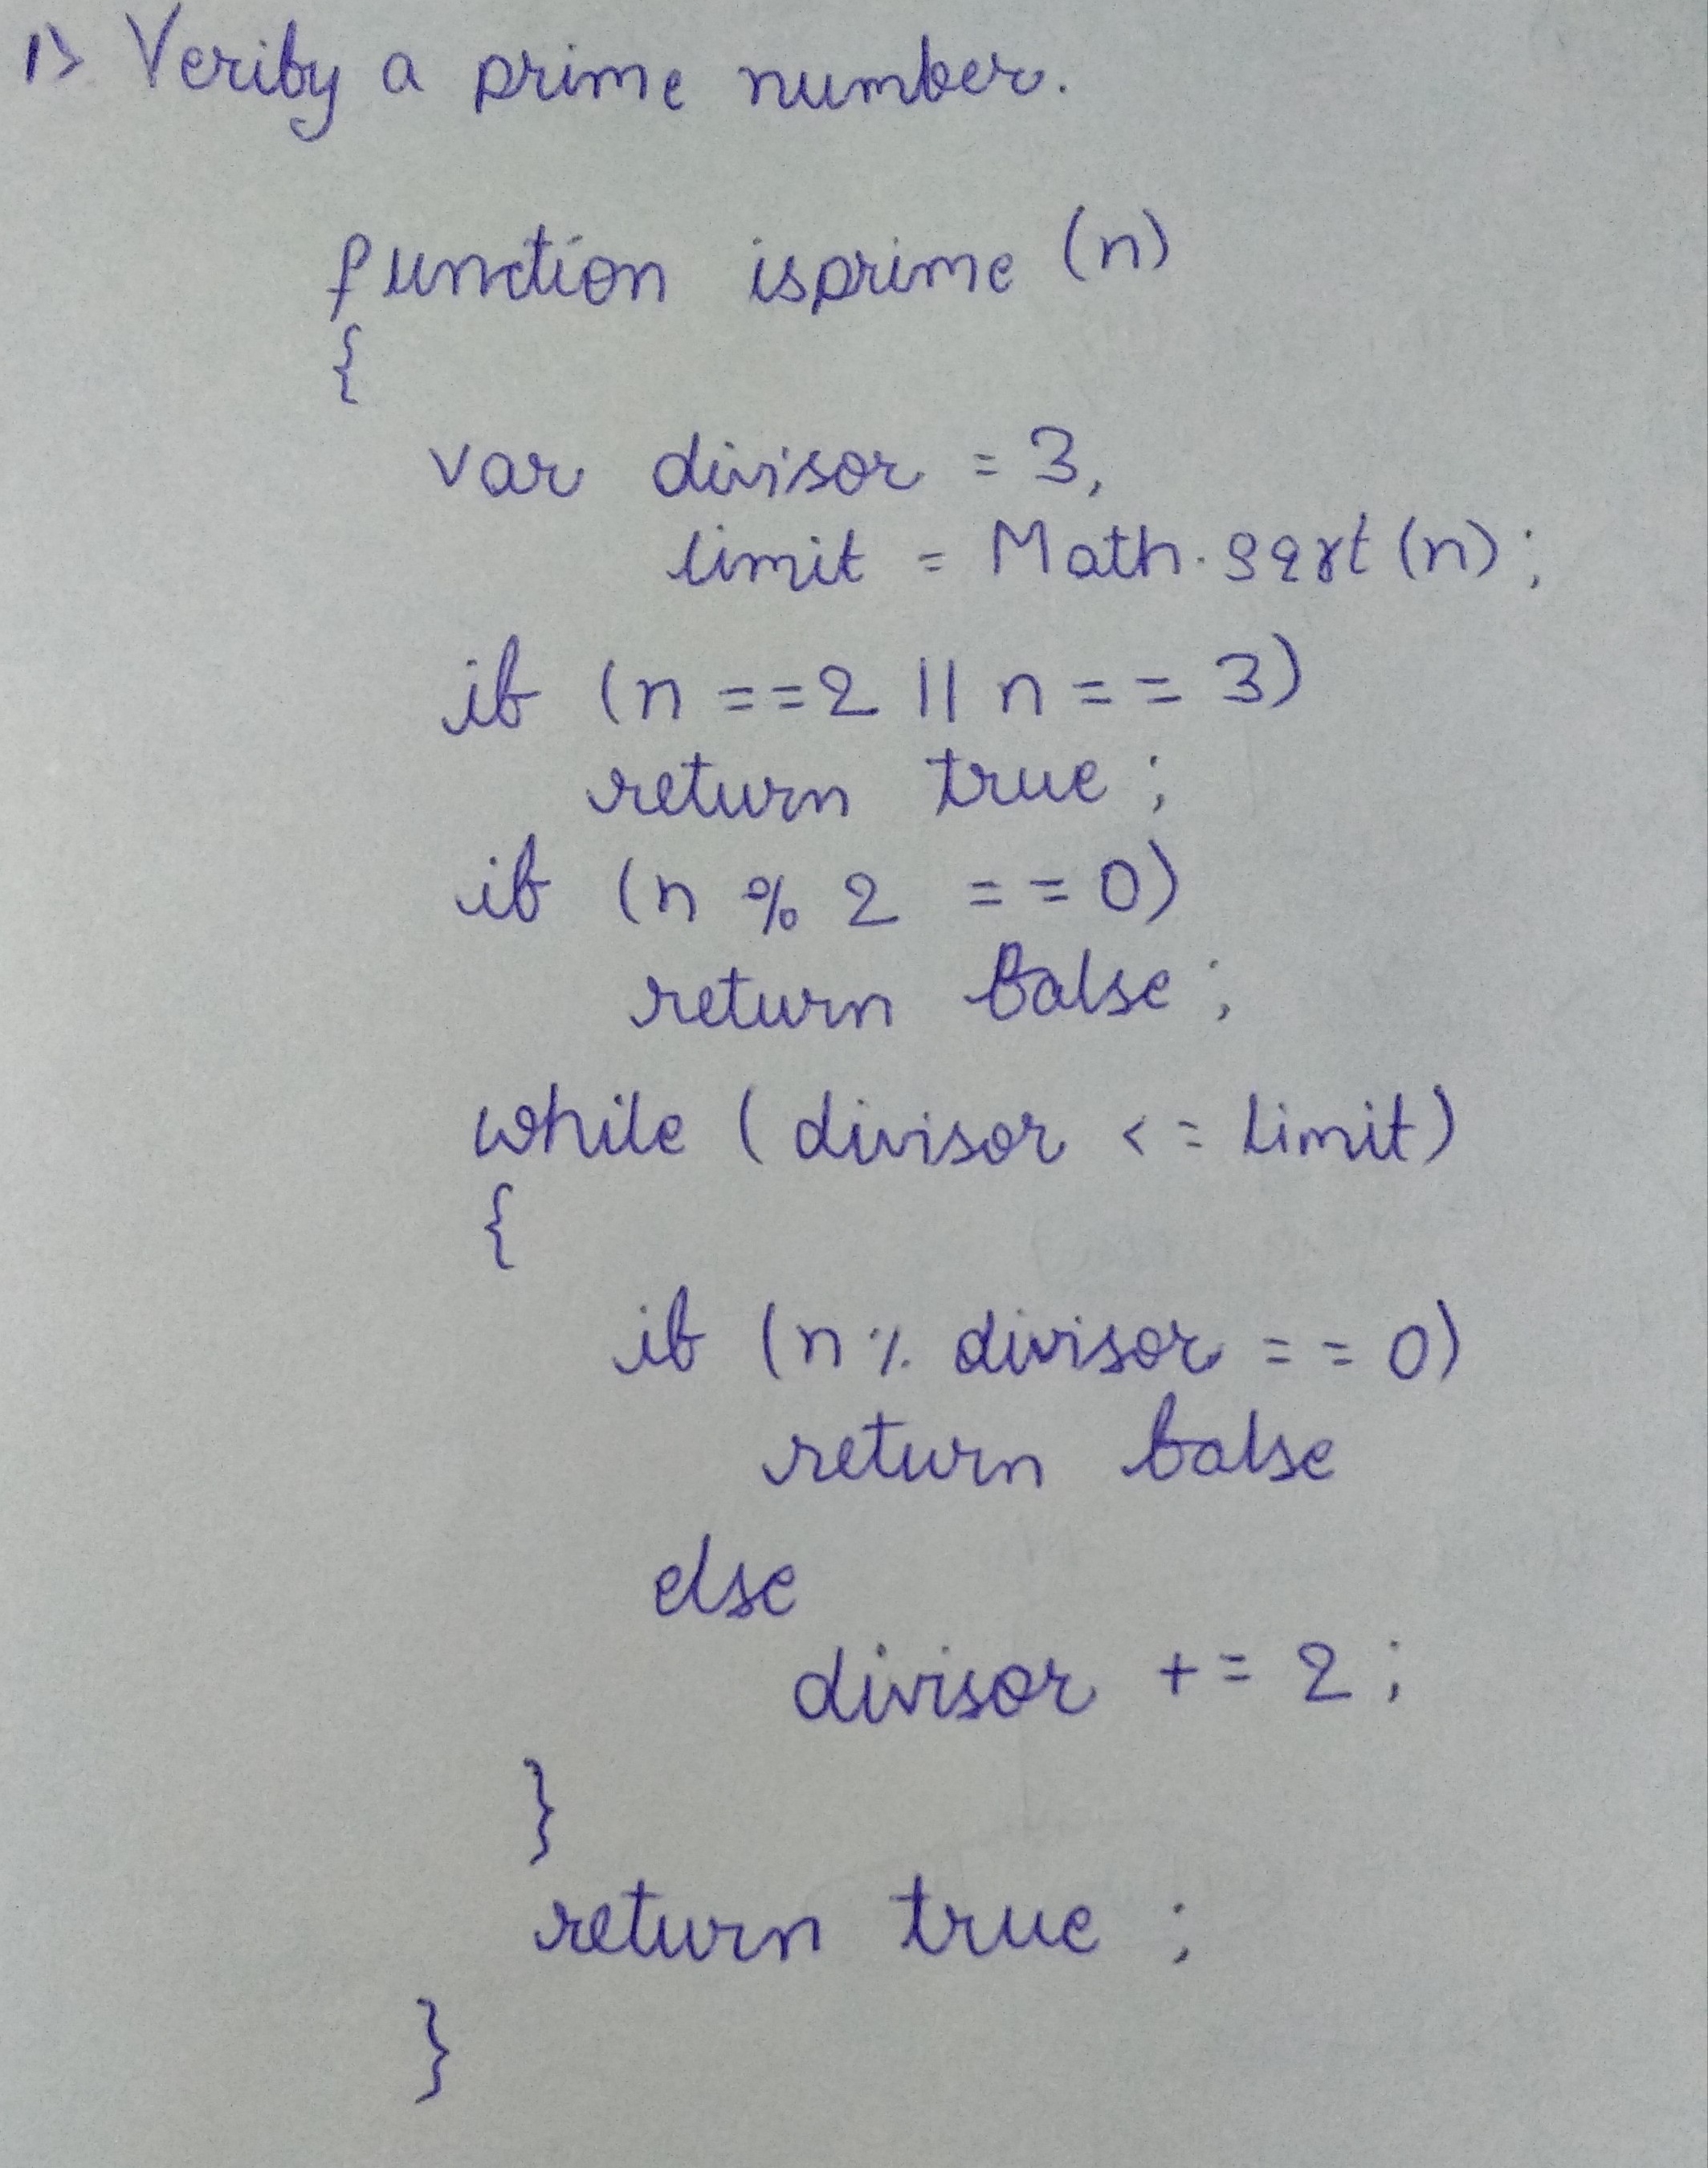 1) Verify a prime number.
function isprime (n)
{
var divisor = 3,
limit = Math.sqrt (n);
if (n ==2 || n == 3)
return true ;
if (n % 2 == 0)
return false ;
while ( divisor <= limit)
{
if (n % divisor == 0)
return false
else
divisor += 2 ;
}
return true ;
}